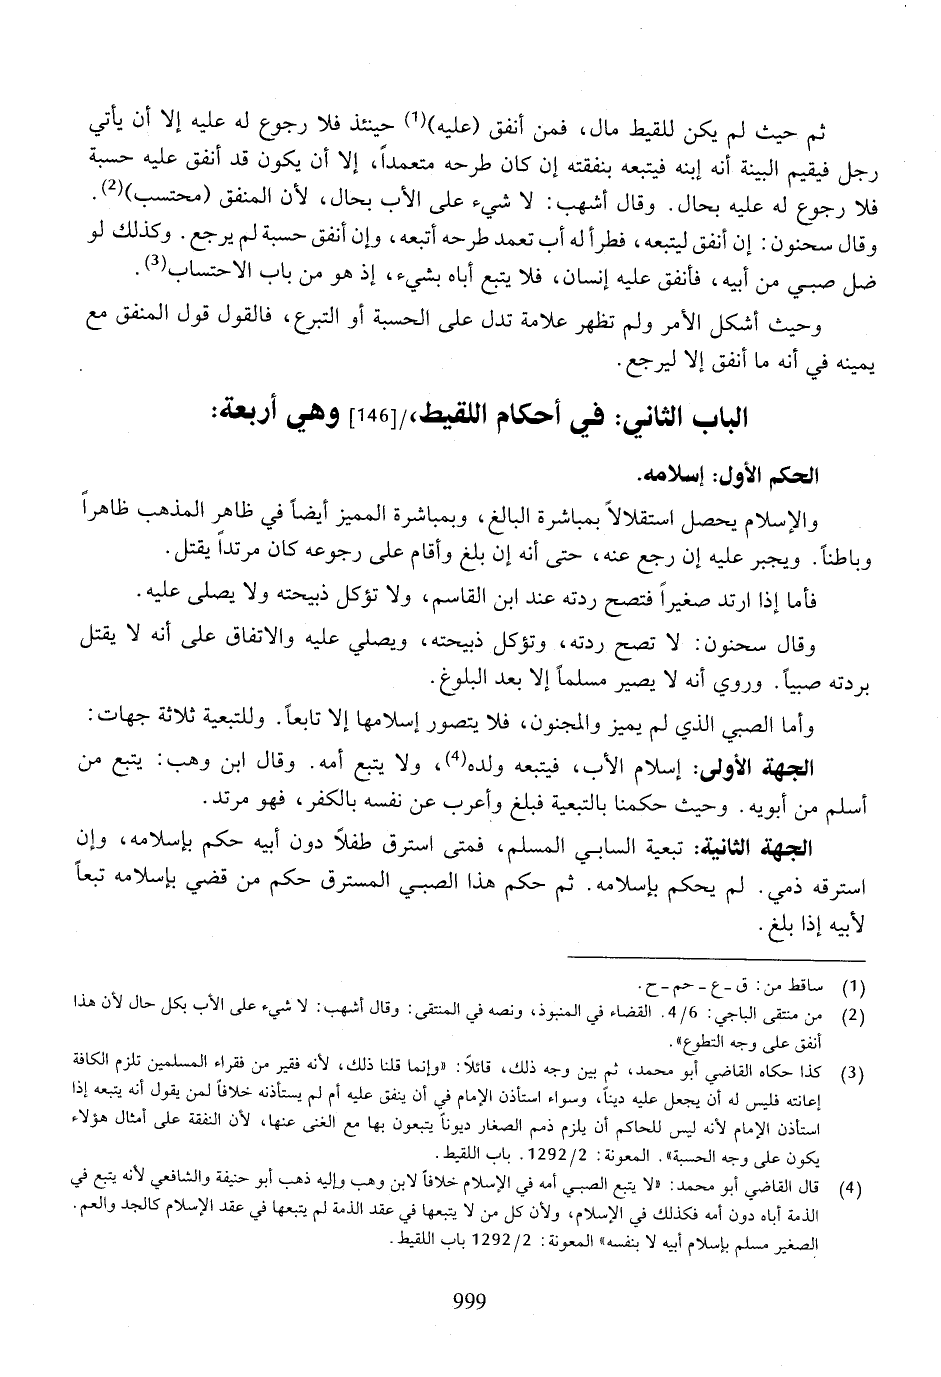 ثم حيث لم يكن للقيط مال، فمن أنفق (عليه)(1) حينئذ فلا رجوع له عليه إلا أن يأتي
رجل فيقيم البينة أنه إبنه فيتبعه بنفقته إن كان طرحه متعمداً، إلا أن يكون قد أنفق عليه حسبة
فلا رجوع له عليه بحال. وقال أشهب: لا شيء على الأب بحال، لأن المنفق (محتسب)(2).
وقال سحنون: إن أنفق ليتبعه، فطرأ له أب تعمد طرحه أتبعه، وإن أنفق حسبة لم يرجع. وكذلك لو
ضل صبي من أبيه، فأنفق عليه إنسان، فلا يتبع أباه بشيء، إذ هو من باب الاحتساب(3).
وحيث أشكل الأمر ولم تظهر علامة تدل على الحسبة أو التبرع، فالقول قول المنفق مع
يمينه في أنه ما أنفق إلا ليرجع.
الباب الثاني: في أحكام اللقيط،/[146] وهي أربعة:
الحكم الأول: إسلامه.
والإسلام يحصل استقلالاً بمباشرة البالغ، وبمباشرة المميز أيضاً في ظاهر المذهب ظاهراً
وباطناً. ويجبر عليه إن رجع عنه، حتى أنه إن بلغ وأقام على رجوعه كان مرتداً يقتل.
فأما إذا ارتد صغيراً فتصح ردته عند ابن القاسم، ولا تؤكل ذبيحته ولا يصلى عليه.
وقال سحنون: لا تصح ردته، وتؤكل ذبيحته، ويصلي عليه والاتفاق على أنه لا يقتل
بردته صبياً. وروي أنه لا يصير مسلماً إلا بعد البلوغ.
وأما الصبي الذي لم يميز والمجنون، فلا يتصور إسلامها إلا تابعاً. وللتبعية ثلاثة جهات:
الجهة الأولى: إسلام الأب، فيتبعه ولده(4)، ولا يتبع أمه. وقال ابن وهب: يتبع من
أسلم من أبويه. وحيث حكمنا بالتبعية فبلغ وأعرب عن نفسه بالكفر، فهو مرتد.
الجهة الثانية: تبعية السابي المسلم، فمتى استرق طفلاً دون أبيه حكم بإسلامه، وإن
استرقه ذمي. لم يحكم بإسلامه. ثم حكم هذا الصبي المسترق حكم من قضي بإسلامه تبعاً
لأبيه إذا بلغ.
(1) ساقط من: ق-ع-حم-ح.
(2) من منتقى الباجي: 4/6. القضاء في المنبوذ، ونصه في المنتقى: وقال أشهب: لا شيء على الأب بكل حال لأن هذا
أنفق على وجه التطوع».
(3) كذا حكاه القاضي أبو محمد، ثم بين وجه ذلك، قائلاً: «وإنما قلنا ذلك، لأنه فقير من فقراء المسلمين تلزم الكافة
إعانته فليس له أن يجعل عليه ديناً، وسواء استأذن الإمام في أن ينفق عليه أم لم يستأذنه خلافاً لمن يقول أنه يتبعه إذا
استأذن الإمام لأنه ليس للحاكم أن يلزم ذمم الصغار ديوناً يتبعون بها مع الغنى عنها، لأن النفقة على أمثال هؤلاء
يكون على وجه الحسبة». المعونة: 1292/2. باب اللقيط.
(4) قال القاضي أبو محمد: «لا يتبع الصبي أمه في الإسلام خلافاً لابن وهب وإليه ذهب أبو حنيفة والشافعي لأنه يتبع في
الذمة أباه دون أمه فكذلك في الإسلام، ولأن كل من لا يتبعها في عقد الذمة لم يتبعها في عقد الإسلام كالجد والعم.
الصغير مسلم بإسلام أبيه لا بنفسه» المعونة: 1292/2 باب اللقيط.
999